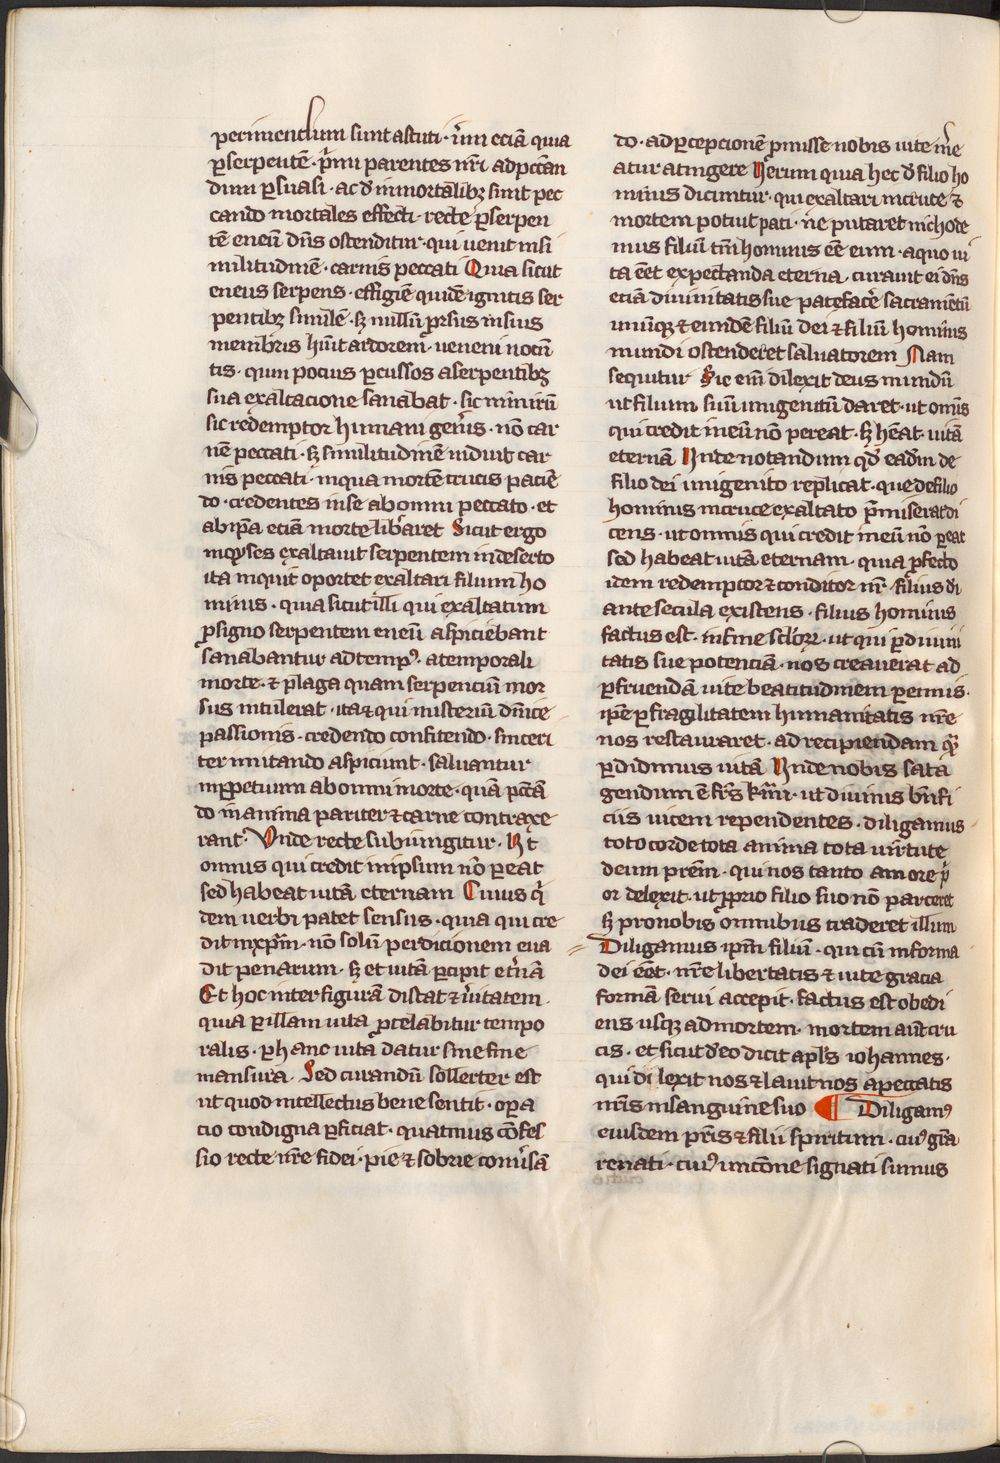 perimendum sunt astuti · uͥm eciā quia
ꝑserpentē · pͥmi parentes nr̄i ad pccan
dum ꝑsuasi · ac de immortalibꝫ sunt pec
cando mortales effecti · recte ꝑ serpen
tē eneū dn̄s ostenditur · qui uenit in si
militudinē · carnis peccati Quia sicut
eneus serpens · effigiē quidē ignitis ser
pentibꝫ similē · sꝫ nullū prsus in suis
membris hūit ardorem · ueneni nocen
tis · quin pocius ꝑcussos a serpentibꝫ
sua exaltacione sanabat · sic nimirū
sic redemptor humani gen̄is · nō car
nē peccati · sꝫ similitudinē induit car
nis peccati · in qua mortē crucis pacie
do · credentes in se ab omni peccato · et
ab ip̄a eciā morte lib̄aret Sicut ergo
moyses exaltauit serpentem in deserto
ita inquit oportet exaltari filium ho
minis · quia sicut illi qui exaltatum
ꝓ signo serpentem eneū aspiciebant
sanabantur ad tempꝰ · a temporali
morte · ⁊ plaga quam serpenciū mor
sus intulerat · ita ⁊ qui misteriū dn̄ice
passionis · credendo confitendo · sinceri
ter imitando aspiciunt · saluantur
in ꝑpetuum ab omni morte · quā pccā
do in anima pariter ⁊ carne contraxe
rant · Vnde recte subiungitur · Vt
omnis qui credit in ipsum nō ꝑeat
sed habeat uitā eternam Cuius qͥ
dem uerbi patet sensus · quia qui cre
dit in xp̄m · nō solū perdicionem eua
dit penarum · sꝫ et uitā ꝑcipit et̄nā
Et hoc inter figurā distat ⁊ u̓itatem ·
quia ꝑ illam uita ꝓtelabitur tempo
ralis · ꝑ hanc uita datur sine fine
mansura · Sed curandū sollerter est
ut quod intellectus bene sentit · oꝑa
cio condigna ꝑficiat · quatinus cōfes
sio recte nr̄e fidei · pie ⁊ sobrie conu̓sā
do · ad ꝑcepcionē ꝓmisse nobis uite me
atur atingere Verum quia hec de filio ho
minis dicuntur · qui exaltari in cruce ⁊
mortem potuit pati · ne putaret nichode
mus filiū tm̄ hominis ēē eum · a quo ui
ta eēt expectanda eterna · curauit ei dn̄s
eciā diuinitatis sue patefacē sacramētū
unūqꝫ ⁊ eundē filiū dei ⁊ filiū hominis
mundi ostenderet saluatorem Nam
sequitur Sic em̄ dilexit deus mundū
ut filium suū unigenitū daret · ut omis
qui credit in eū nō pereat · sꝫ hēat · uitā
eternā Vnde notandum qd̓ eadm̄ de
filio dei unigenito replicat · que de filio
hominis in cruce exaltato pͥmiserat di
cens · ut omnis qui credit in eū nō ꝑeat
sed habeat uitā eternam · quia ꝓfecto
idem redemptor ⁊ conditor nr̄ · filius di
ante secula existens · filius hominis
factus est · in fine sclōꝝ · ut qui ꝑ diuini
tatis sue potenciā · nos creauerat ad
ꝑfruendā uite beatitudinem ꝑennis ·
ip̄e ꝑ fragilitatem humanitatis nr̄e
nos restauraret · ad recipiendam qͣ
ꝑdidimus uitā Vnde nobis sata
gendum ē fr̄s kr̄mi · ut diuinis bn̄fi
ciis uicem rependentes · diligamus
toto corde tota anima tota uirtute
deum prēm · qui nos tanto amore pͥ
or delexit · ut ꝓprio filio suo nō parceret
sꝫ pro nobis omnibus traderet illum
Diligamus ip̄m filiū · qui cū in forma
dei eēt · nr̄e libertatis ⁊ uite gracia
formā serui accepit · factus est obedi
ens usqꝫ ad mortem · mortem aut̄ cru
cis · et sicut de eo dicit apl̄s iohannes ·
qui dilexit nos ⁊ lauit nos a peccatis
nr̄is in sanguine suo ¶ Diligamꝰ
eiusdem pr̄is ⁊ filii spiritum · cuiꝰ grā
renati · cuiꝰ unctōne signati sumus